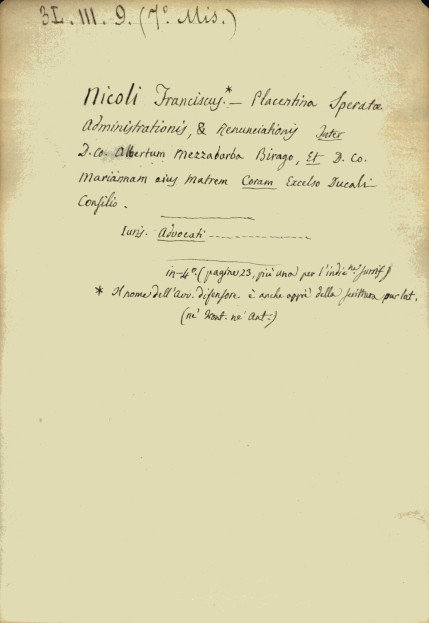 3L. III. 9. (7º Mis.)
Nicoli Franciscus*_ Placentina Speratæ
Administrationis, & Renunciationis Inter
D. Co. Albertum Mezzabarba Birago, Et D. Co.
Mariannam eius matrem Coram Excelso Ducali
Consilio.
Iuris. Advocati
in-4º (pagine 23, più una per l'indic
* Il nome dell'Avv. difensore è anche della scrittura
(nè front. nè ant.)